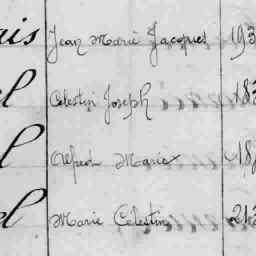 ris Jean Marie Jacques 193
el Celestin Joseph 183
l Alfred Marie 18
el Marie Célestin 213